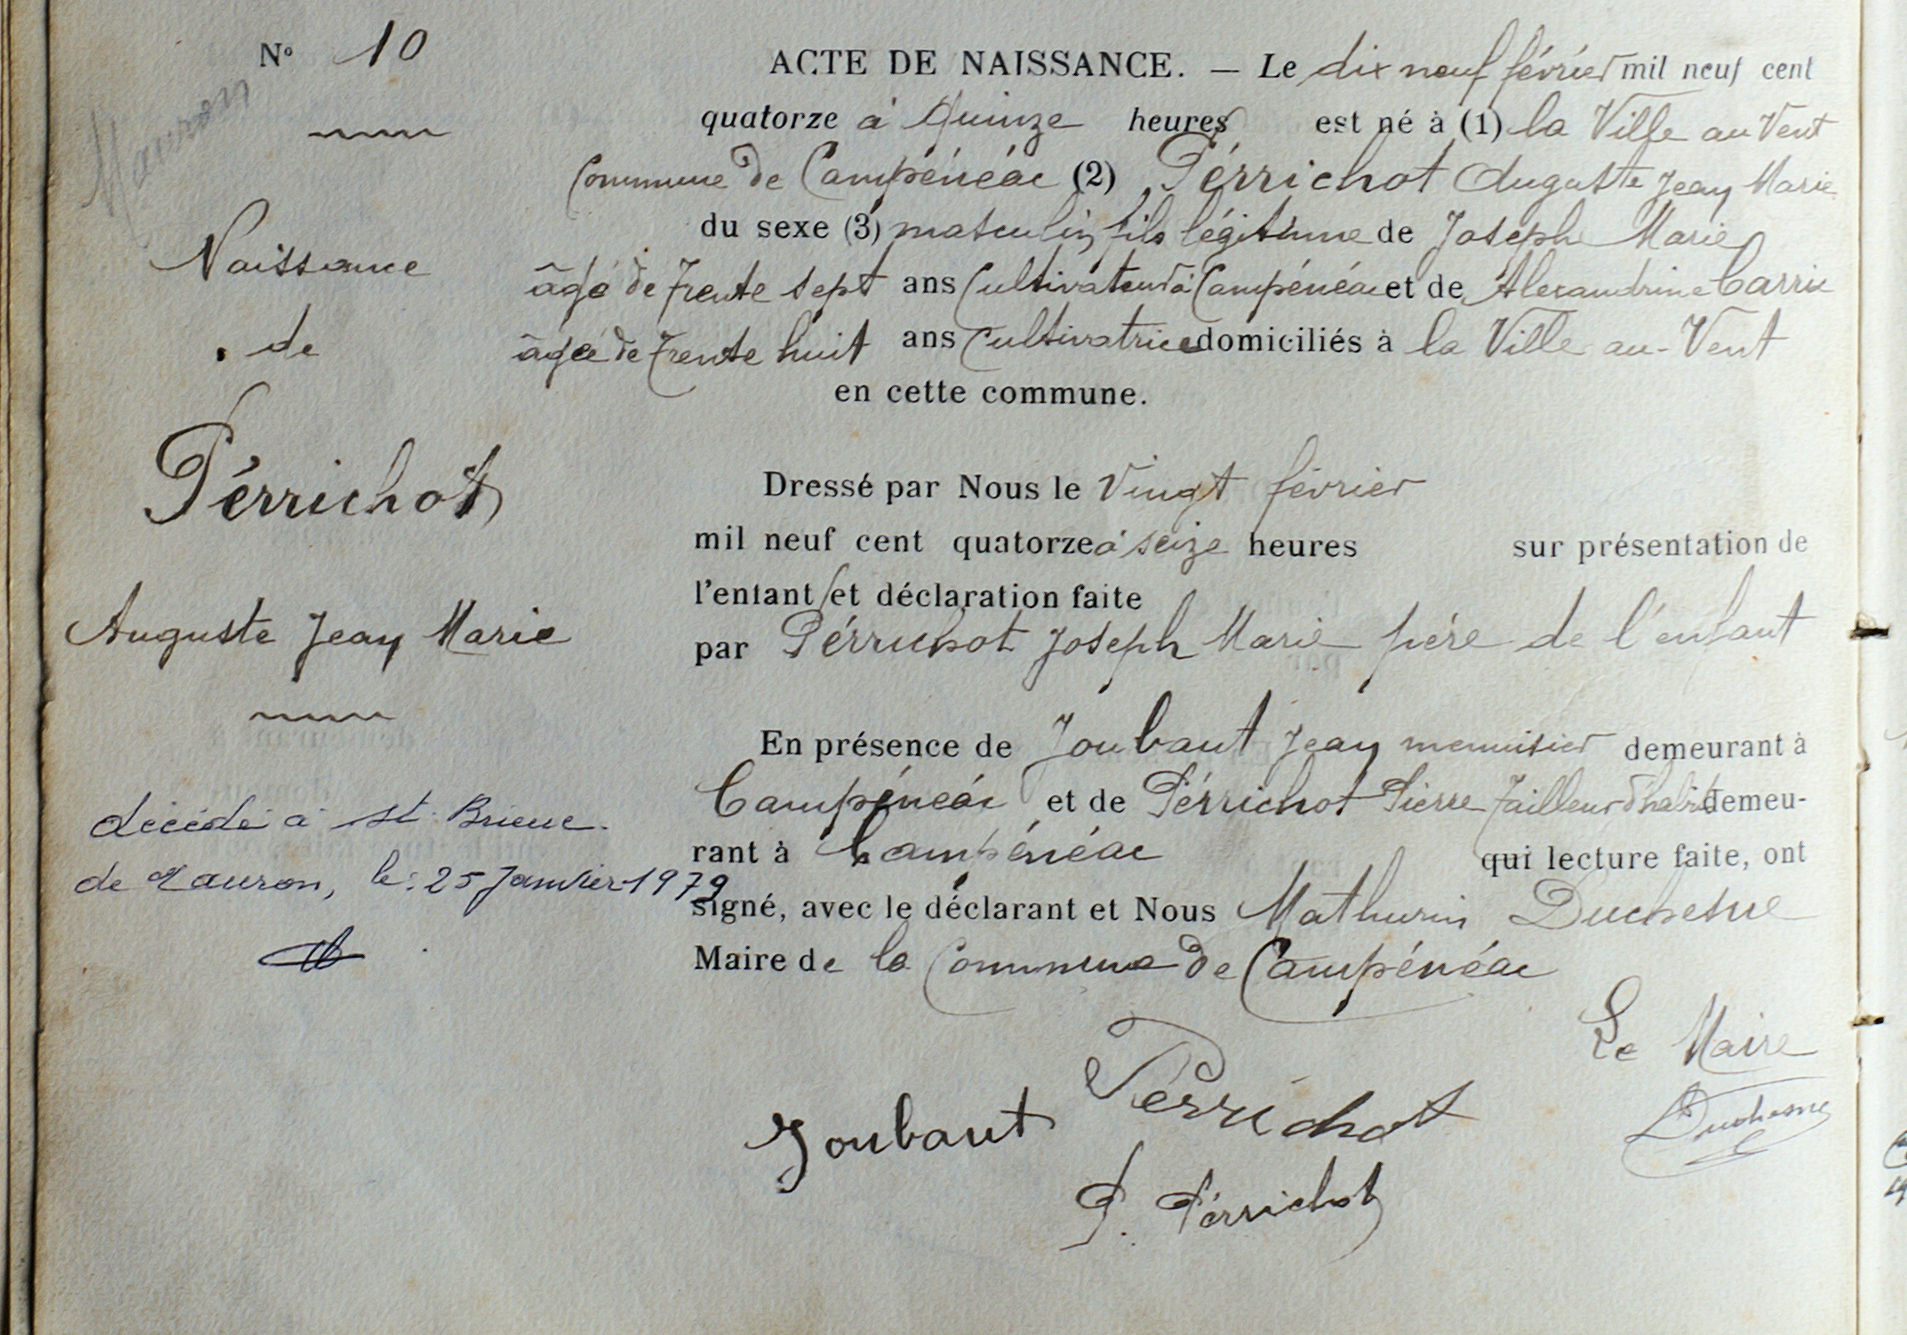 N° 10
Mauron
Naissance
de
Pérrichot
Auguste Jean Marie
décédé à St. Brieuc
de Mauron, le: 25 Janvier 1979
ACTE DE NAISSANCE. — Le dix neuf février mil neuf cent
quatorze à Quinze heures est né à (1) la Ville au Vent
Commune de Campénéac (2) Pérrichot Auguste Jean Marie
du sexe (3) masculin fils légitime de Joseph Marie
âgé de trente sept ans Cultivateur à Campénéac et de Alexandrine Carric
âgée de trente huit ans Cultivatrice domiciliés à la Ville au-Vent
en cette commune.
Dressé par Nous le Vingt février
mil neuf cent quatorze à seize heures sur présentation de
l'enfant et déclaration faite
par Pérrichot Joseph Marie père de l'enfant
En présence de Joubaut Jean menuisier demeurant à
Campénéac et de Pérrichot Pierre Tailleur d'habits demeu-
rant à Campénéac qui lecture faite, ont
signé, avec le déclarant et Nous Mathurin Duchesne
Maire de la Commune de Campénéac
Le Maire
Pérrichot
Duchesne
Joubaut
P. Pérrichot